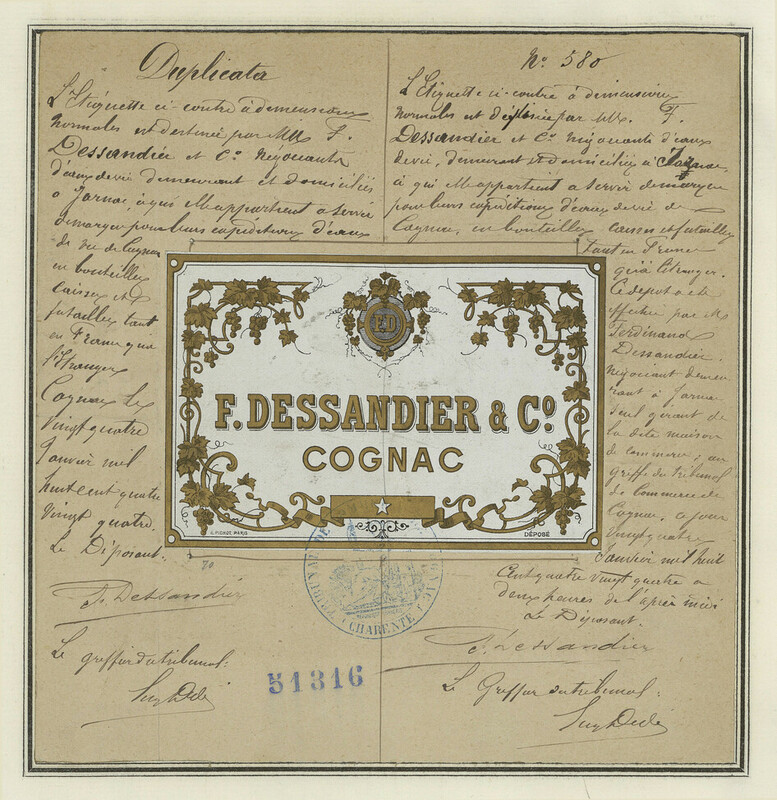 Duplicata
L'Etiquette ci-contre à demeusceaux
Normales est destinée par MM. F.
Dessandier et Cº Négociants
d'eaux de vie demeurant et domiciliés
à Jarnac, à qui elle appartient à servir
de marque pour leurs expéditions d'eaux
de vie de Cognac
en bouteilles
caisses et
futailles tant
en France que
l'Etranger
Cognac le
vingt quatre
Janvier mil
huit cent quatre
vingt quatre.
Le Déposant:
F. Dessandier
Le greffier du tribunal:
Nº 580
L'Etiquette ci-contre à
Normales est déposée par MM. F.
Dessandier et Cº Négociants d'eaux
de vie, demeurant et domiciliés à Jarnac,
à qui elle appartient à servir de marque
pour leurs expéditions d'eaux de vie de
Cognac, en bouteilles caisses et futailles
tant en France
qu'à l'étranger.
Ce dépôt a été
effectué par M.
Ferdinand
Dessandier,
Négociant demeu
rant à Jarnac
seul gérant de
la dite maison
de commerce; au
greffe du tribunal
de Commerce de
Cognac, ce jour
vingt quatre
Janvier mil huit
cent quatre vingt quatre à
deux heures de l'après midi
Le Déposant.
F. Dessandier
Le Greffier du tribunal:
ED
F. DESSANDIER & Cº
COGNAC
PARIS
DÉPOSÉ
70
CHARENTE
51316